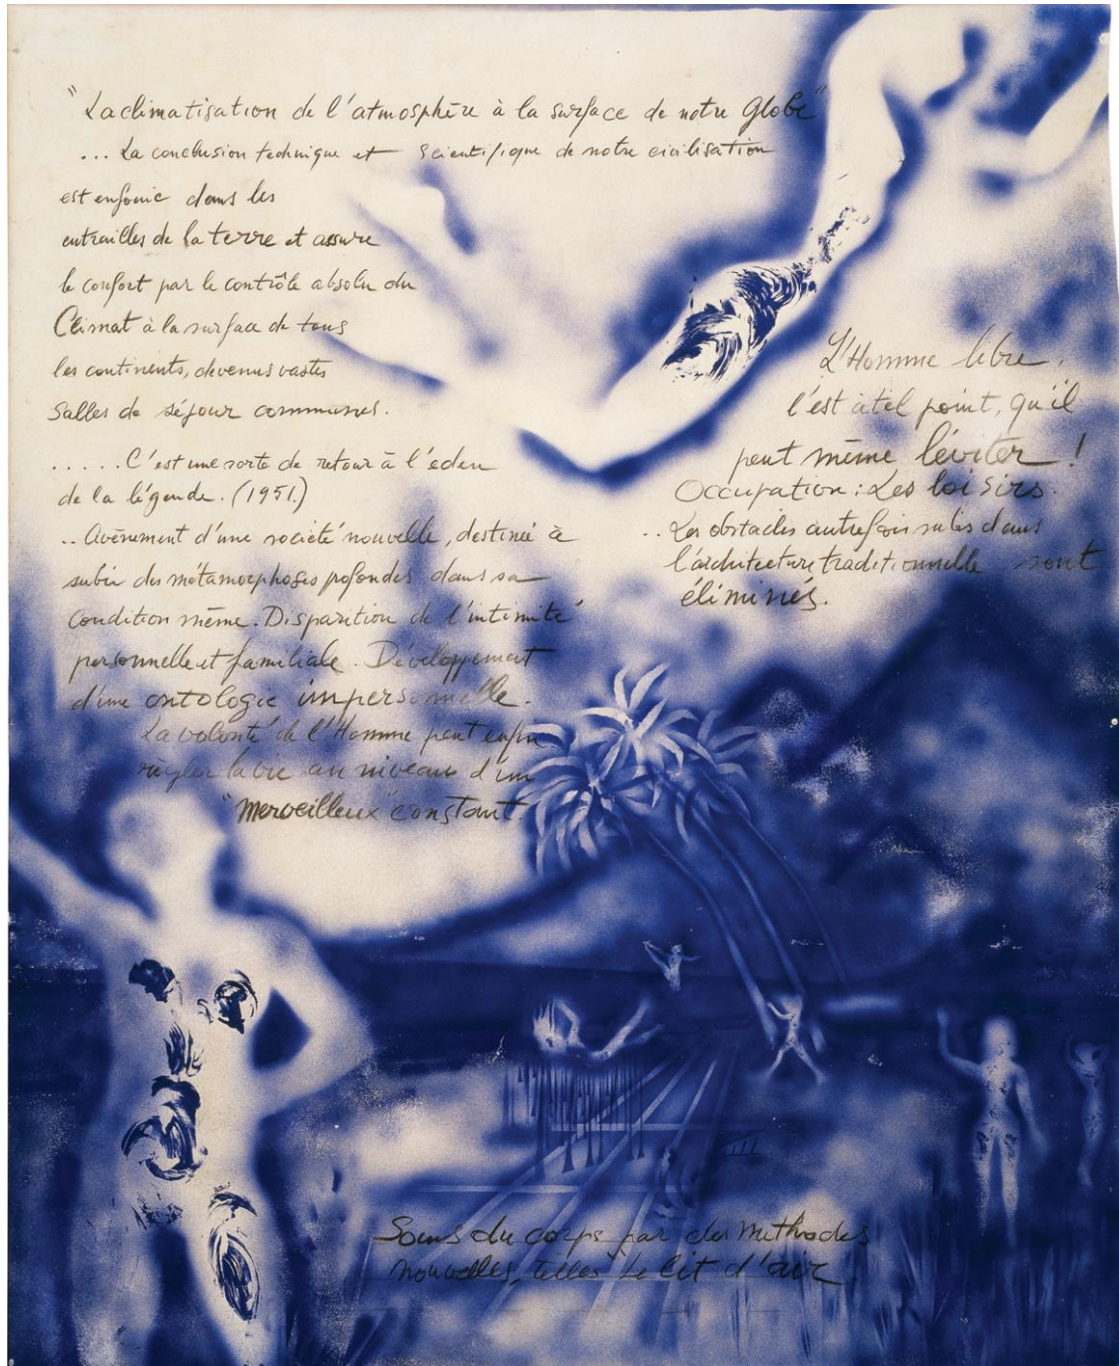 "La climatisation de l'atmosphère à la surface de notre Globe"
... La conclusion technique et scientifique de notre civilisation
est enfouie dans les
entrailles de la terre et assure
le confort par le contrôle absolu du
Climat à la surface de tous
les continents, devenus vastes
Salles de séjour communes.
..... C'est une sorte de retour à l'eden
de la légende. (1951.)
.. Avènement d'une société nouvelle, destinée à
subir des métamorphoses profondes dans sa
condition même. Disparition de l'intimité
personnelle et familiale. Développement
d'une ontologie impersonnelle.
La volonté de l'Homme peut enfin
régler la vie au niveau d'un
"Merveilleux" constant.
L'Homme libre,
l'est à tel point, qu'il
peut même léviter !
Occupation : Les loisirs.
.. Les obstacles autrefois subis dans
l'architecture traditionnelle sont
éliminés.
Soins du corps par des méthodes
nouvelles, telles le lit d'air.